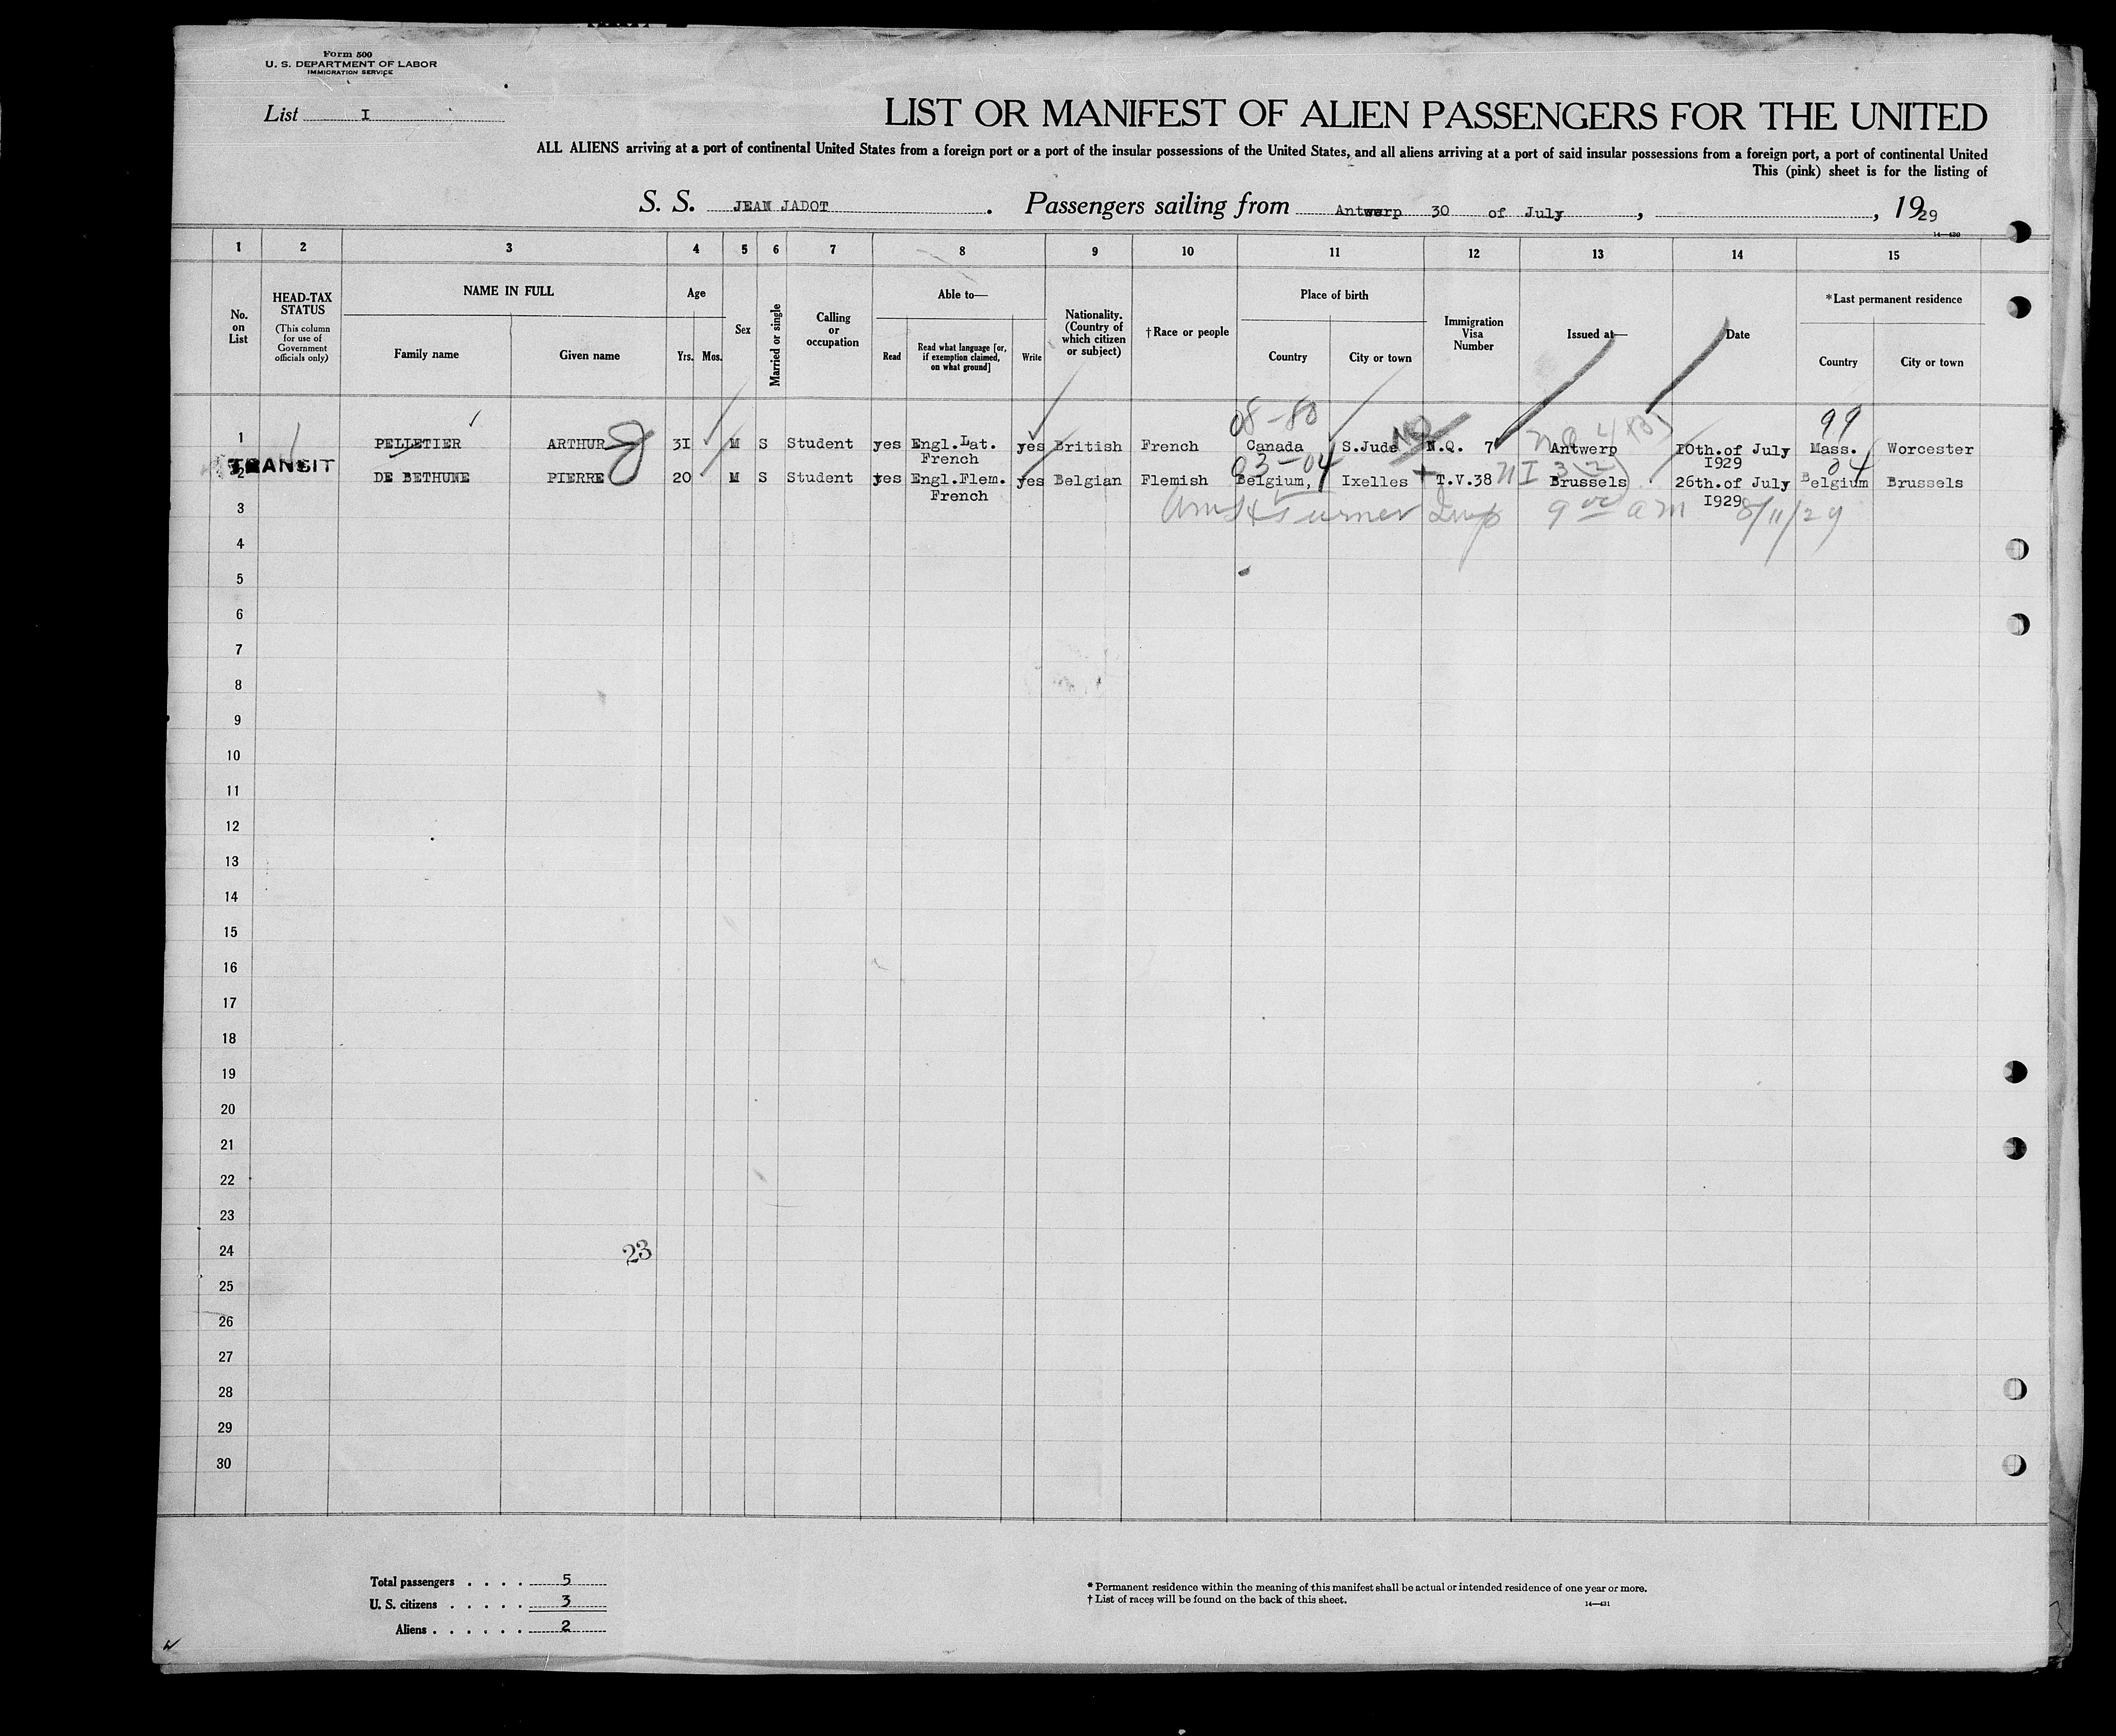 Form 500
U. S. DEPARTMENT OF LABOR
IMMIGRATION SERVICE
List I
LIST OR MANIFEST OF ALIEN PASSENGERS FOR THE UNITED
ALL ALIENS arriving at a port of continental United States from a foreign port or a port of the insular possessions of the United States, and all aliens arriving at a port of said insular possessions from a foreign port, a port of continental United
This (pink) sheet is for the listing of
S. S. JEAN JADOT . Passengers sailing from Antwerp 30 of July , , 1929
14—430
1 2 3 4 5 6 7 8 9 10 11 12 13 14 15
No. on List
HEAD-TAX STATUS
(This column for use of Government officials only)
NAME IN FULL
Family name Given name
Age
Yrs. Mos.
Sex
Married or single
Calling or occupation
Able to—
Read
Read what language [or, if exemption claimed, on what ground]
Write
Nationality. (Country of which citizen or subject)
†Race or people
Place of birth
Country City or town
Immigration Visa Number
Issued at—
Date
*Last permanent residence
Country City or town
08-80 99
1 PELLETIER ARTHUR 31 M S Student yes Engl.Lat. French yes British French Canada S.Jude N.Q. 7 Antwerp 10th.of July 1929 Mass. Worcester
TRANSIT
03-04 04
2 DE BETHUNE PIERRE 20 M S Student yes Engl.Flem. French yes Belgian Flemish Belgium, Ixelles T.V.38 NI 3(2) Brussels 26th.of July 1929 Belgium Brussels
3 Turner Insp 9 00 am 8/11/29
4
5
6
7
8
9
10
11
12
13
14
15
16
17
18
19
20
21
22
23
24
23
25
26
27
28
29
30
Total passengers . . . . 5
U. S. citizens . . . . . 3
Aliens . . . . . . 2
* Permanent residence within the meaning of this manifest shall be actual or intended residence of one year or more.
† List of races will be found on the back of this sheet.
14—431